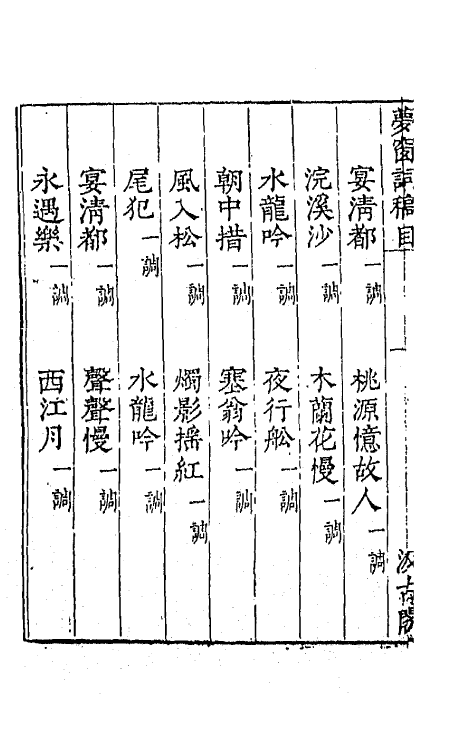 夢窗詞稿目
一
汲古閣
宴淸都一調 桃源憶故人一調
浣溪沙一調 木蘭花慢一調
水龍吟一調 夜行船一調
朝中措一調 塞翁吟一調
風入松一調 燭影搖紅一調
尾犯一調 水龍吟一調
宴淸都一調 聲聲慢一調
永遇樂一調 西江月一調